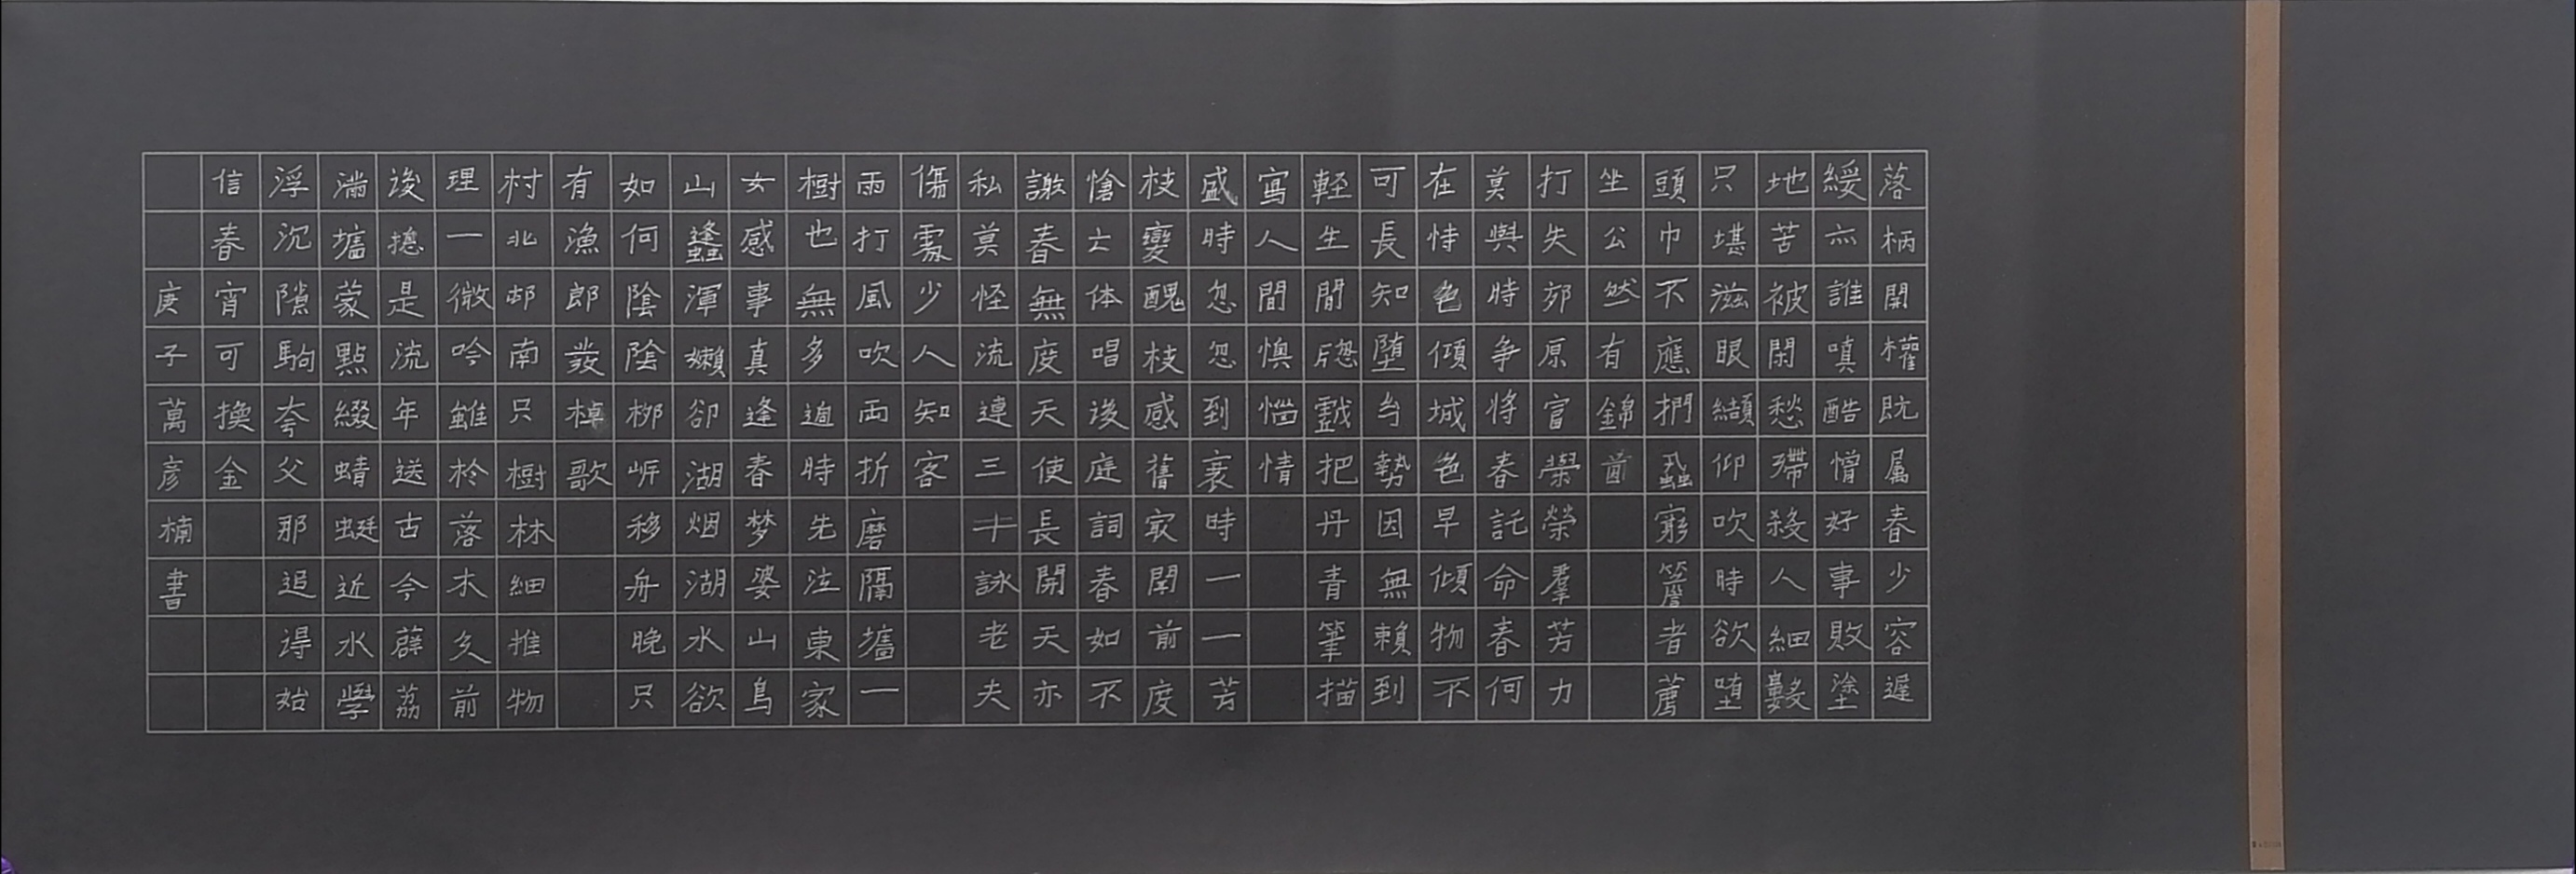 落柄開權既属春少容遲
綬亦誰嗔酷憎好事敗塗
地苦被閑愁殢殺人細數
只堪滋眼纈仰吹時欲堕
頭巾不應捫蝨窮簷者薦
坐公然有錦茵
打失郊原富學榮羣芳力
莫與時争将春託命春何
在恃色傾城色早傾物不
可長知堕勢因無賴到
輕生閒牕戲把丹青筆描
寫人間懊惱情
盛時忽忽到衰時一一芳
枝變醜枝感舊㝡関前度
愴亡体唱後庭詞春如不
謝春無度天使長開天亦
私莫怪流連三十詠老夫
傷處少人知客
雨打風吹雨折磨隔墻一
樹也無多逈時先注東家
女感事真逢春梦婆山鳥
山蜂渾嬾卻湖烟湖水欲
如何陰陰栁岍移舟晚只
有漁郎發棹歌
村北邨南只樹林細推物
理一微吟雖於落木久前
後摠是流年送古今薜荔
滿墻蒙點綴蜻蜓近水學
浮沉隙駒夸父那追得始
信春宵可換金
庚子萬彦楠書